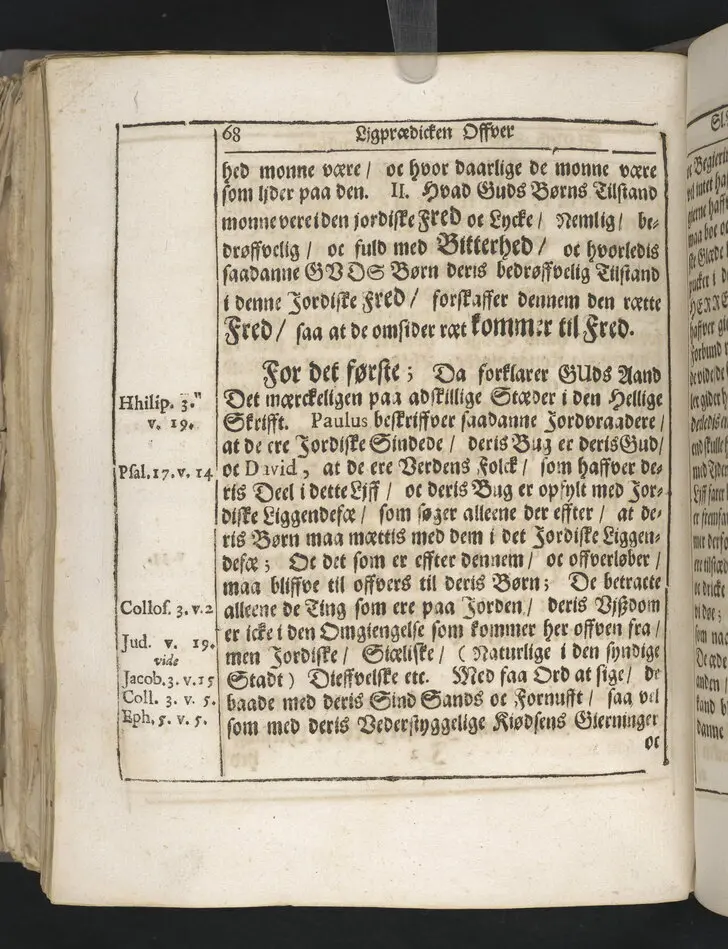 68 Ljgprædicken Offver
hed monne være / oc hvor daarlige de monne være
som ljder paa den. II. Hvad Guds Børns Tilstand
monne vere i den jordiske Fred oc Lycke / Nemlig / be-
drøffvelig / oc fuld med Bitterhed / oc hvorledis
saadanne GVDS Børn deris bedrøffvelig Tilstand
i denne Jordiske Fred / forskaffer dennem den rætte
Fred / saa at de omsider ræt kommer til Fred.
For det første; Da forklarer GUds Aand
Det mærckeligen paa adskillige Stæder i den Hellige
Skrifft. Paulus beskriffver saadanne Jordvraadere /
at de ere Jordiske Sindede / deris Bug er deris Gud /
oc David, at de ere Verdens Folck / som haffver de-
ris Deel i dette Ljff / oc deris Bug er opfylt med Jor-
diske Liggendefæ / som søger alleene der effter / at de-
ris Børn maa mættis med dem i det Jordiske Liggen-
defæ; Oc det som er effter dennem / oc offverløber /
maa bliffve til offvers til deris Børn; De betracte
alleene de Ting som ere paa Jorden / deris Vjßdom
er icke i den Omgiengelse som kommer her offven fra /
men Jordiske / Siæliske / (Naturlige i den syndige
Stadt) Dieffvelske etc. Med faa Ord at sige / de
baade med deris Sind Sands oc Fornufft / saa vel
som med deris Vederstyggelige Kiødsens Gierninger
oc
Hhilip. 3."
v. 19.
Psal. 17. v. 14
Collos. 3. v. 2
Jud. v. 19.
vide
Jacob. 3. v. 15
Coll. 3. v. 5.
Eph. 5. v. 5.